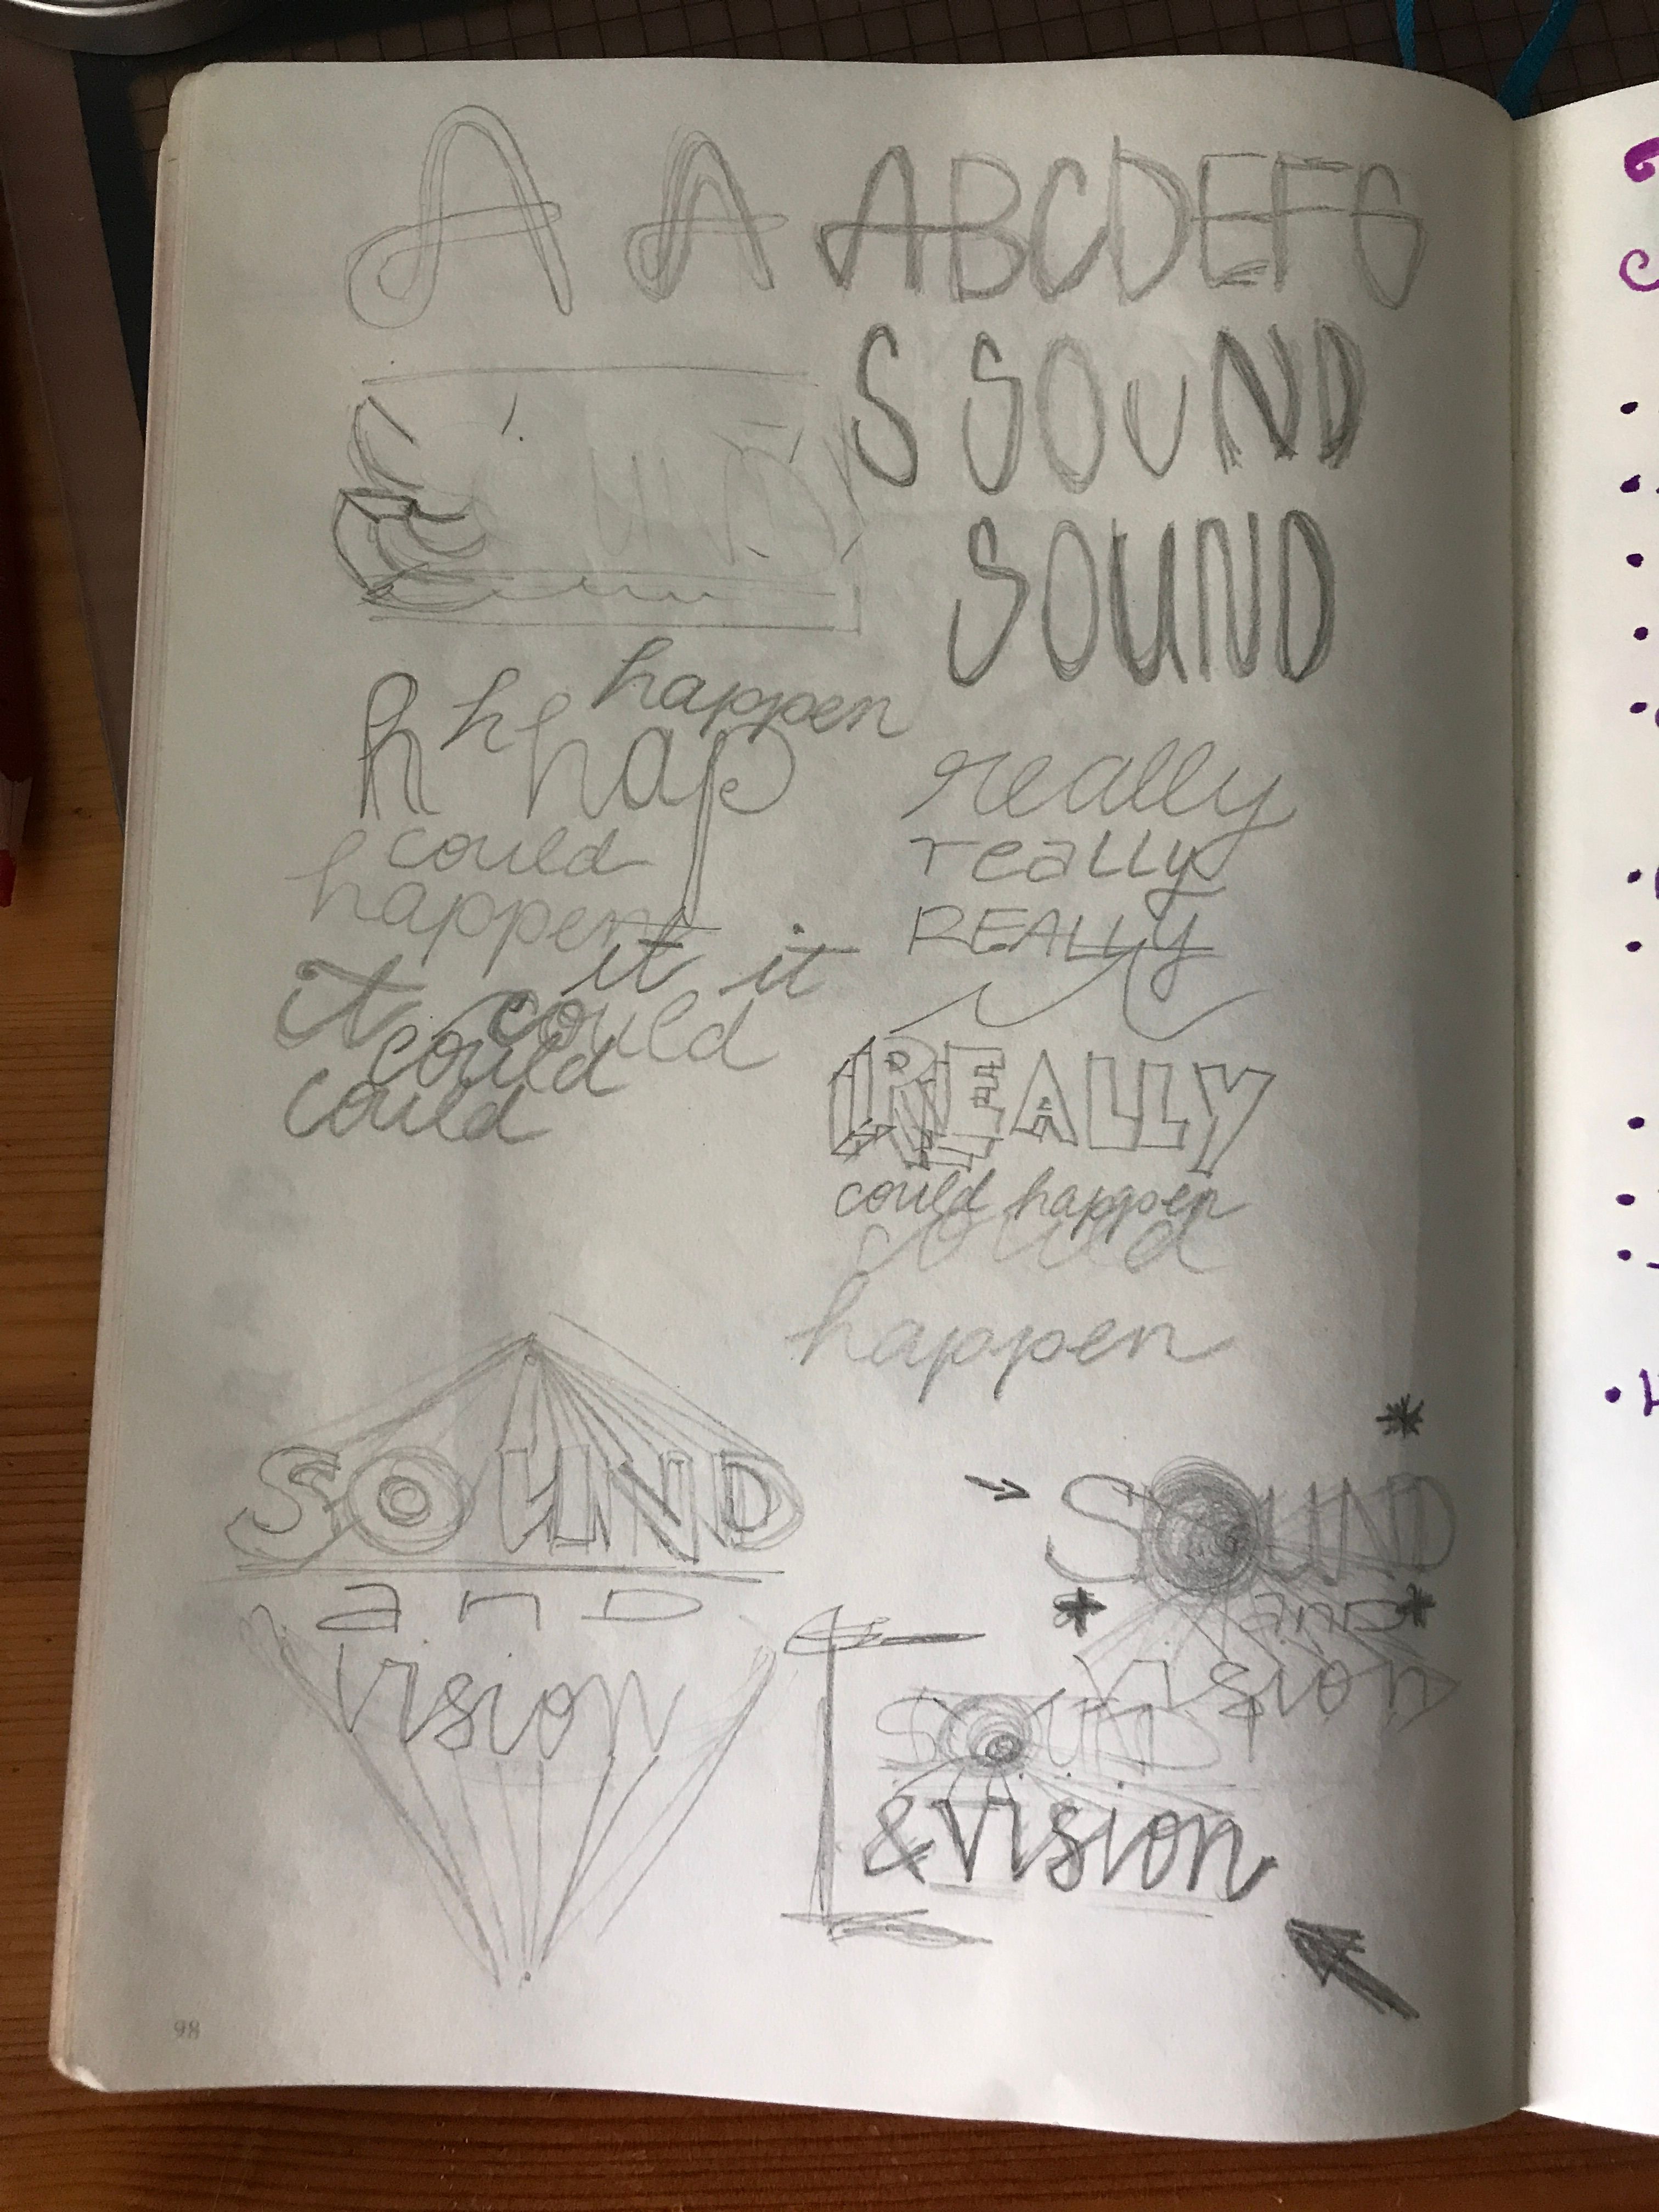 A A ABCDEFG
S SOUND
SOUND
happen
h h hap
could
happen
it it
it could
could
could
really
really
REALLY
REALLY
could happen
could
happen
SOUND
and
vision
SOUND
and
vision
SOUND
&vision
98